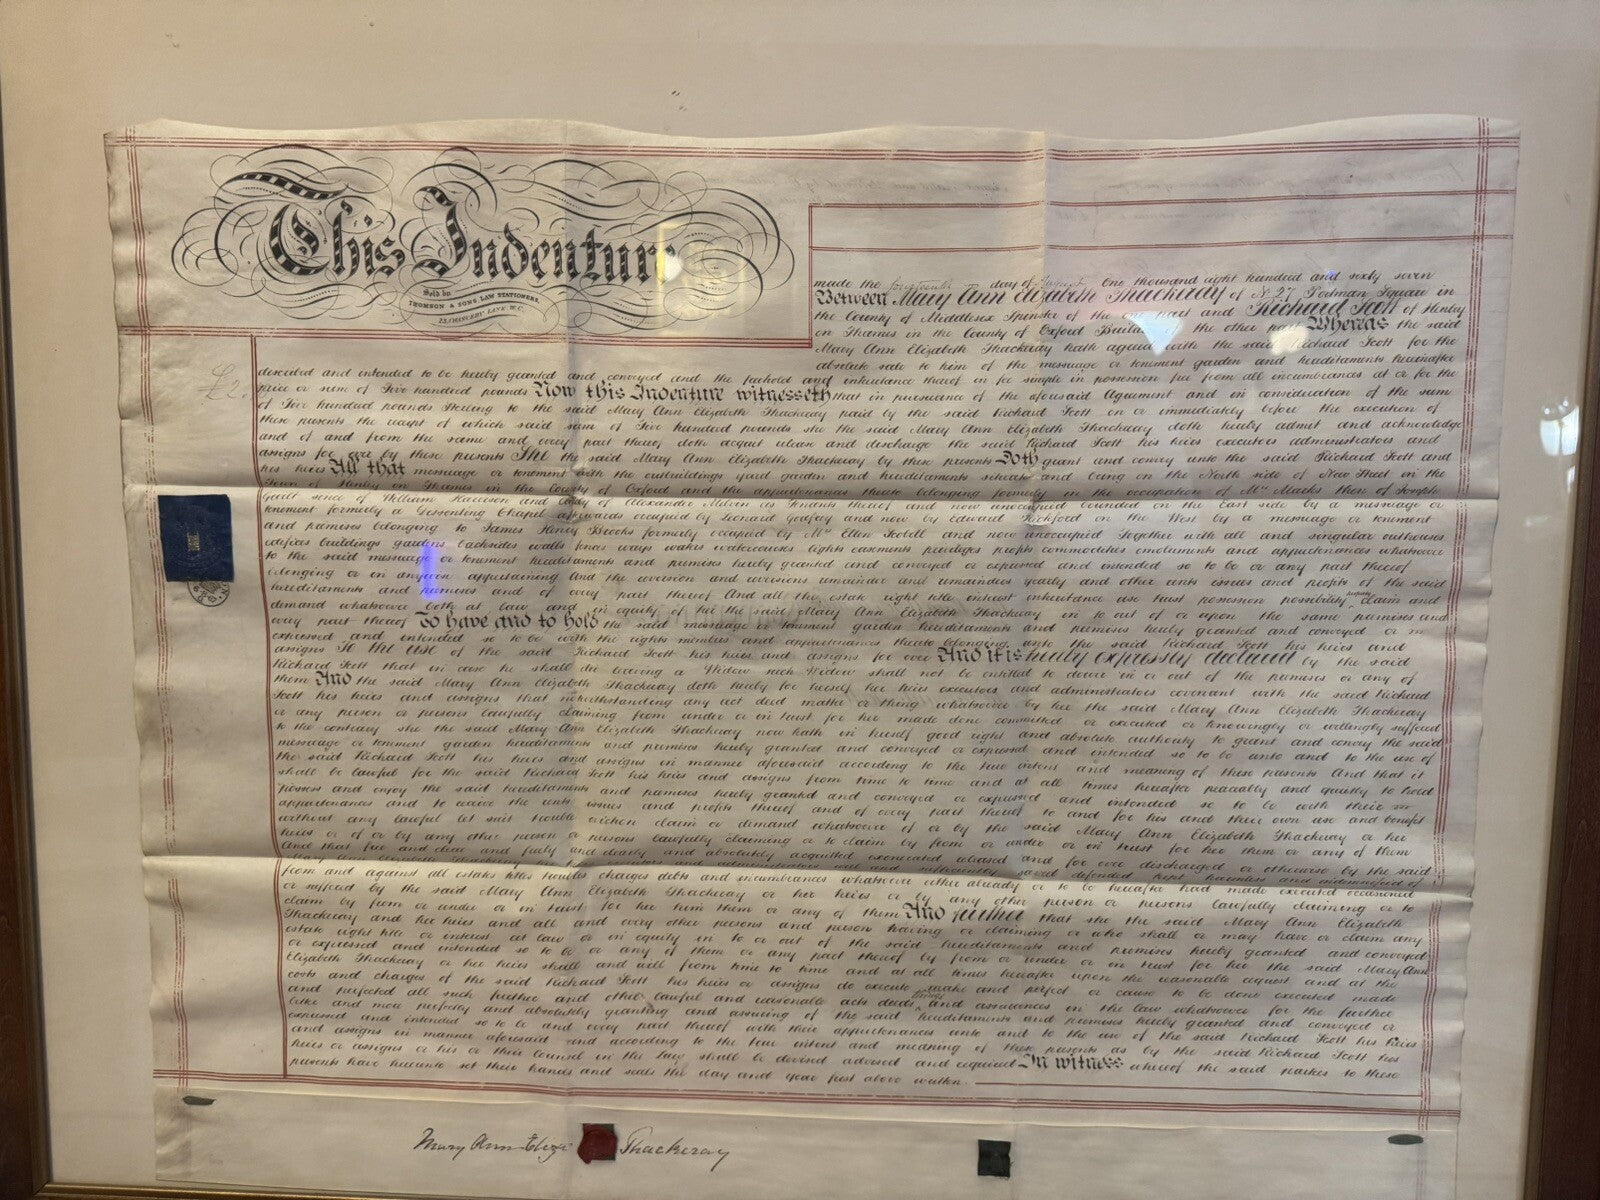 This Indenture
Sold by
THOMSON & SONS LAW STATIONERS,
CHANCERY LANE W.C.
made the fourteenth day of August One thousand eight hundred and sixty seven
Between Mary Ann Elizabeth Thackeray of No 27 Portman Square in
the County of Middlesex Spinster of the one part and Richard Scott of Henley
on Thames in the County of Oxford Builder of the other part Whereas the said
Mary Ann Elizabeth Thackeray hath agreed with the said Richard Scott for the
absolute sale to him of the messuage or tenement garden and hereditaments hereinafter
described and intended to be hereby granted and conveyed and the freehold and inheritance thereof in fee simple in possession free from all incumbrances at or for the
price or sum of Five hundred pounds Now this Indenture witnesseth that in pursuance of the aforesaid Agreement and in consideration of the sum
of Five hundred pounds Sterling to the said Mary Ann Elizabeth Thackeray paid by the said Richard Scott on or immediately before the execution of
these presents the receipt of which said sum of Five hundred pounds she the said Mary Ann Elizabeth Thackeray doth hereby admit and acknowledge
and of and from the same and every part thereof doth acquit release and discharge the said Richard Scott his heirs executors administrators and
assigns for ever by these presents She the said Mary Ann Elizabeth Thackeray by these presents Doth grant and convey unto the said Richard Scott and
his heirs All that messuage or tenement with the outbuildings yard garden and hereditaments situate and being on the North side of New Street in the
Town of Henley on Thames in the County of Oxford and the appurtenances thereto belonging formerly in the occupation of Mrs Marks then of Joseph
since of William Harrison and of Alexander as Tenants thereof and now unoccupied bounded on the East side by a messuage or
tenement formerly a Dissenting Chapel afterwards occupied by Leonard Godfrey and now by Edward on the West by a messuage or tenement
and premises belonging to James Henry Brooks formerly occupied by Mrs Ellen and now unoccupied Together with all and singular outhouses
edifices buildings gardens backsides walls fences ways waters watercourses lights easements privileges profits commodities emoluments and appurtenances whatsoever
to the said messuage or tenement hereditaments and premises hereby granted and conveyed or expressed and intended so to be or any part thereof
belonging or in anywise appertaining And the reversion and reversions remainder and remainders yearly and other rents issues and profits of the said
hereditaments and premises and of every part thereof And all the estate right title interest inheritance use trust possession possibility property claim and
demand whatsoever both at law and in equity of her the said Mary Ann Elizabeth Thackeray in to out of or upon the same premises and
every part thereof To have and to hold the said messuage or tenement garden hereditaments and premises hereby granted and conveyed or
expressed and intended so to be with the rights members and appurtenances thereto belonging unto the said Richard Scott his heirs and
assigns To the use of the said Richard Scott his heirs and assigns for ever And it is hereby expressly declared by the said
Richard Scott that in case he shall die leaving a Widow such Widow shall not be entitled to dower in or out of the premises or any of
them And the said Mary Ann Elizabeth Thackeray doth hereby for herself her heirs executors and administrators covenant with the said Richard
Scott his heirs and assigns that notwithstanding any act deed matter or thing whatsoever by her the said Mary Ann Elizabeth Thackeray
or any person or persons lawfully claiming from under or in trust for her made done committed or executed or knowingly or willingly suffered
to the contrary she the said Mary Ann Elizabeth Thackeray now hath in herself good right and absolute authority to grant and convey the said
messuage or tenement garden hereditaments and premises hereby granted and conveyed or expressed and intended so to be unto and to the use of
the said Richard Scott his heirs and assigns in manner aforesaid according to the true intent and meaning of these presents And that it
shall be lawful for the said Richard Scott his heirs and assigns from time to time and at all times hereafter peaceably and quietly to hold
possess and enjoy the said hereditaments and premises hereby granted and conveyed or expressed and intended so to be with their
appurtenances and to receive the rents issues and profits thereof and of every part thereof to and for his and their own use and benefit
without any lawful let suit trouble eviction claim or demand whatsoever of or by the said Mary Ann Elizabeth Thackeray or her
heirs or of or by any other person or persons lawfully claiming or to claim by from or under or in trust for her them or any of them
And that free and clear and freely and clearly and absolutely acquitted exonerated released and for ever discharged or otherwise by the said
Mary Ann Elizabeth Thackeray her heirs executors and administrators well and sufficiently saved defended kept harmless and indemnified of
from and against all estates titles troubles charges debts and incumbrances whatsoever either already or to be hereafter had made executed occasioned
or suffered by the said Mary Ann Elizabeth Thackeray or her heirs or by any other person or persons lawfully claiming or to
claim by from or under or in trust for her them or any of them And further that she the said Mary Ann Elizabeth
Thackeray and her heirs and all and every other persons and person having or claiming or who shall or may have or claim any
estate right title or interest at law or in equity in to or out of the said hereditaments and premises hereby granted and conveyed
or expressed and intended so to be or any of them or any part thereof by from or under or in trust for her the said Mary Ann
Elizabeth Thackeray or her heirs shall and will from time to time and at all times hereafter upon the reasonable request and at the
costs and charges of the said Richard Scott his heirs or assigns do execute make and perfect or cause to be done executed made
and perfected all such further and other lawful and reasonable acts deeds things and assurances in the law whatsoever for the further
better and more perfectly and absolutely granting and assuring of the said hereditaments and premises hereby granted and conveyed or
expressed and intended so to be and every part thereof with their appurtenances unto and to the use of the said Richard Scott his heirs
and assigns in manner aforesaid and according to the true intent and meaning of these presents as by the said Richard Scott his
heirs or assigns or his or their Counsel in the Law shall be devised advised and required In witness whereof the said parties to these
presents have hereunto set their hands and seals the day and year first above written.
Mary Ann Eliz Thackeray